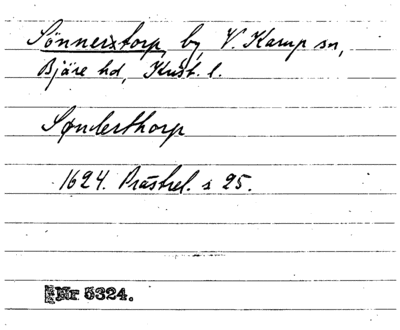 Sönnerstorp, by, V. Karup sn,
Bjäre hd, Krist. l.
Sønderthorp
1624. Prästrel. s 25.
Nr 5324.